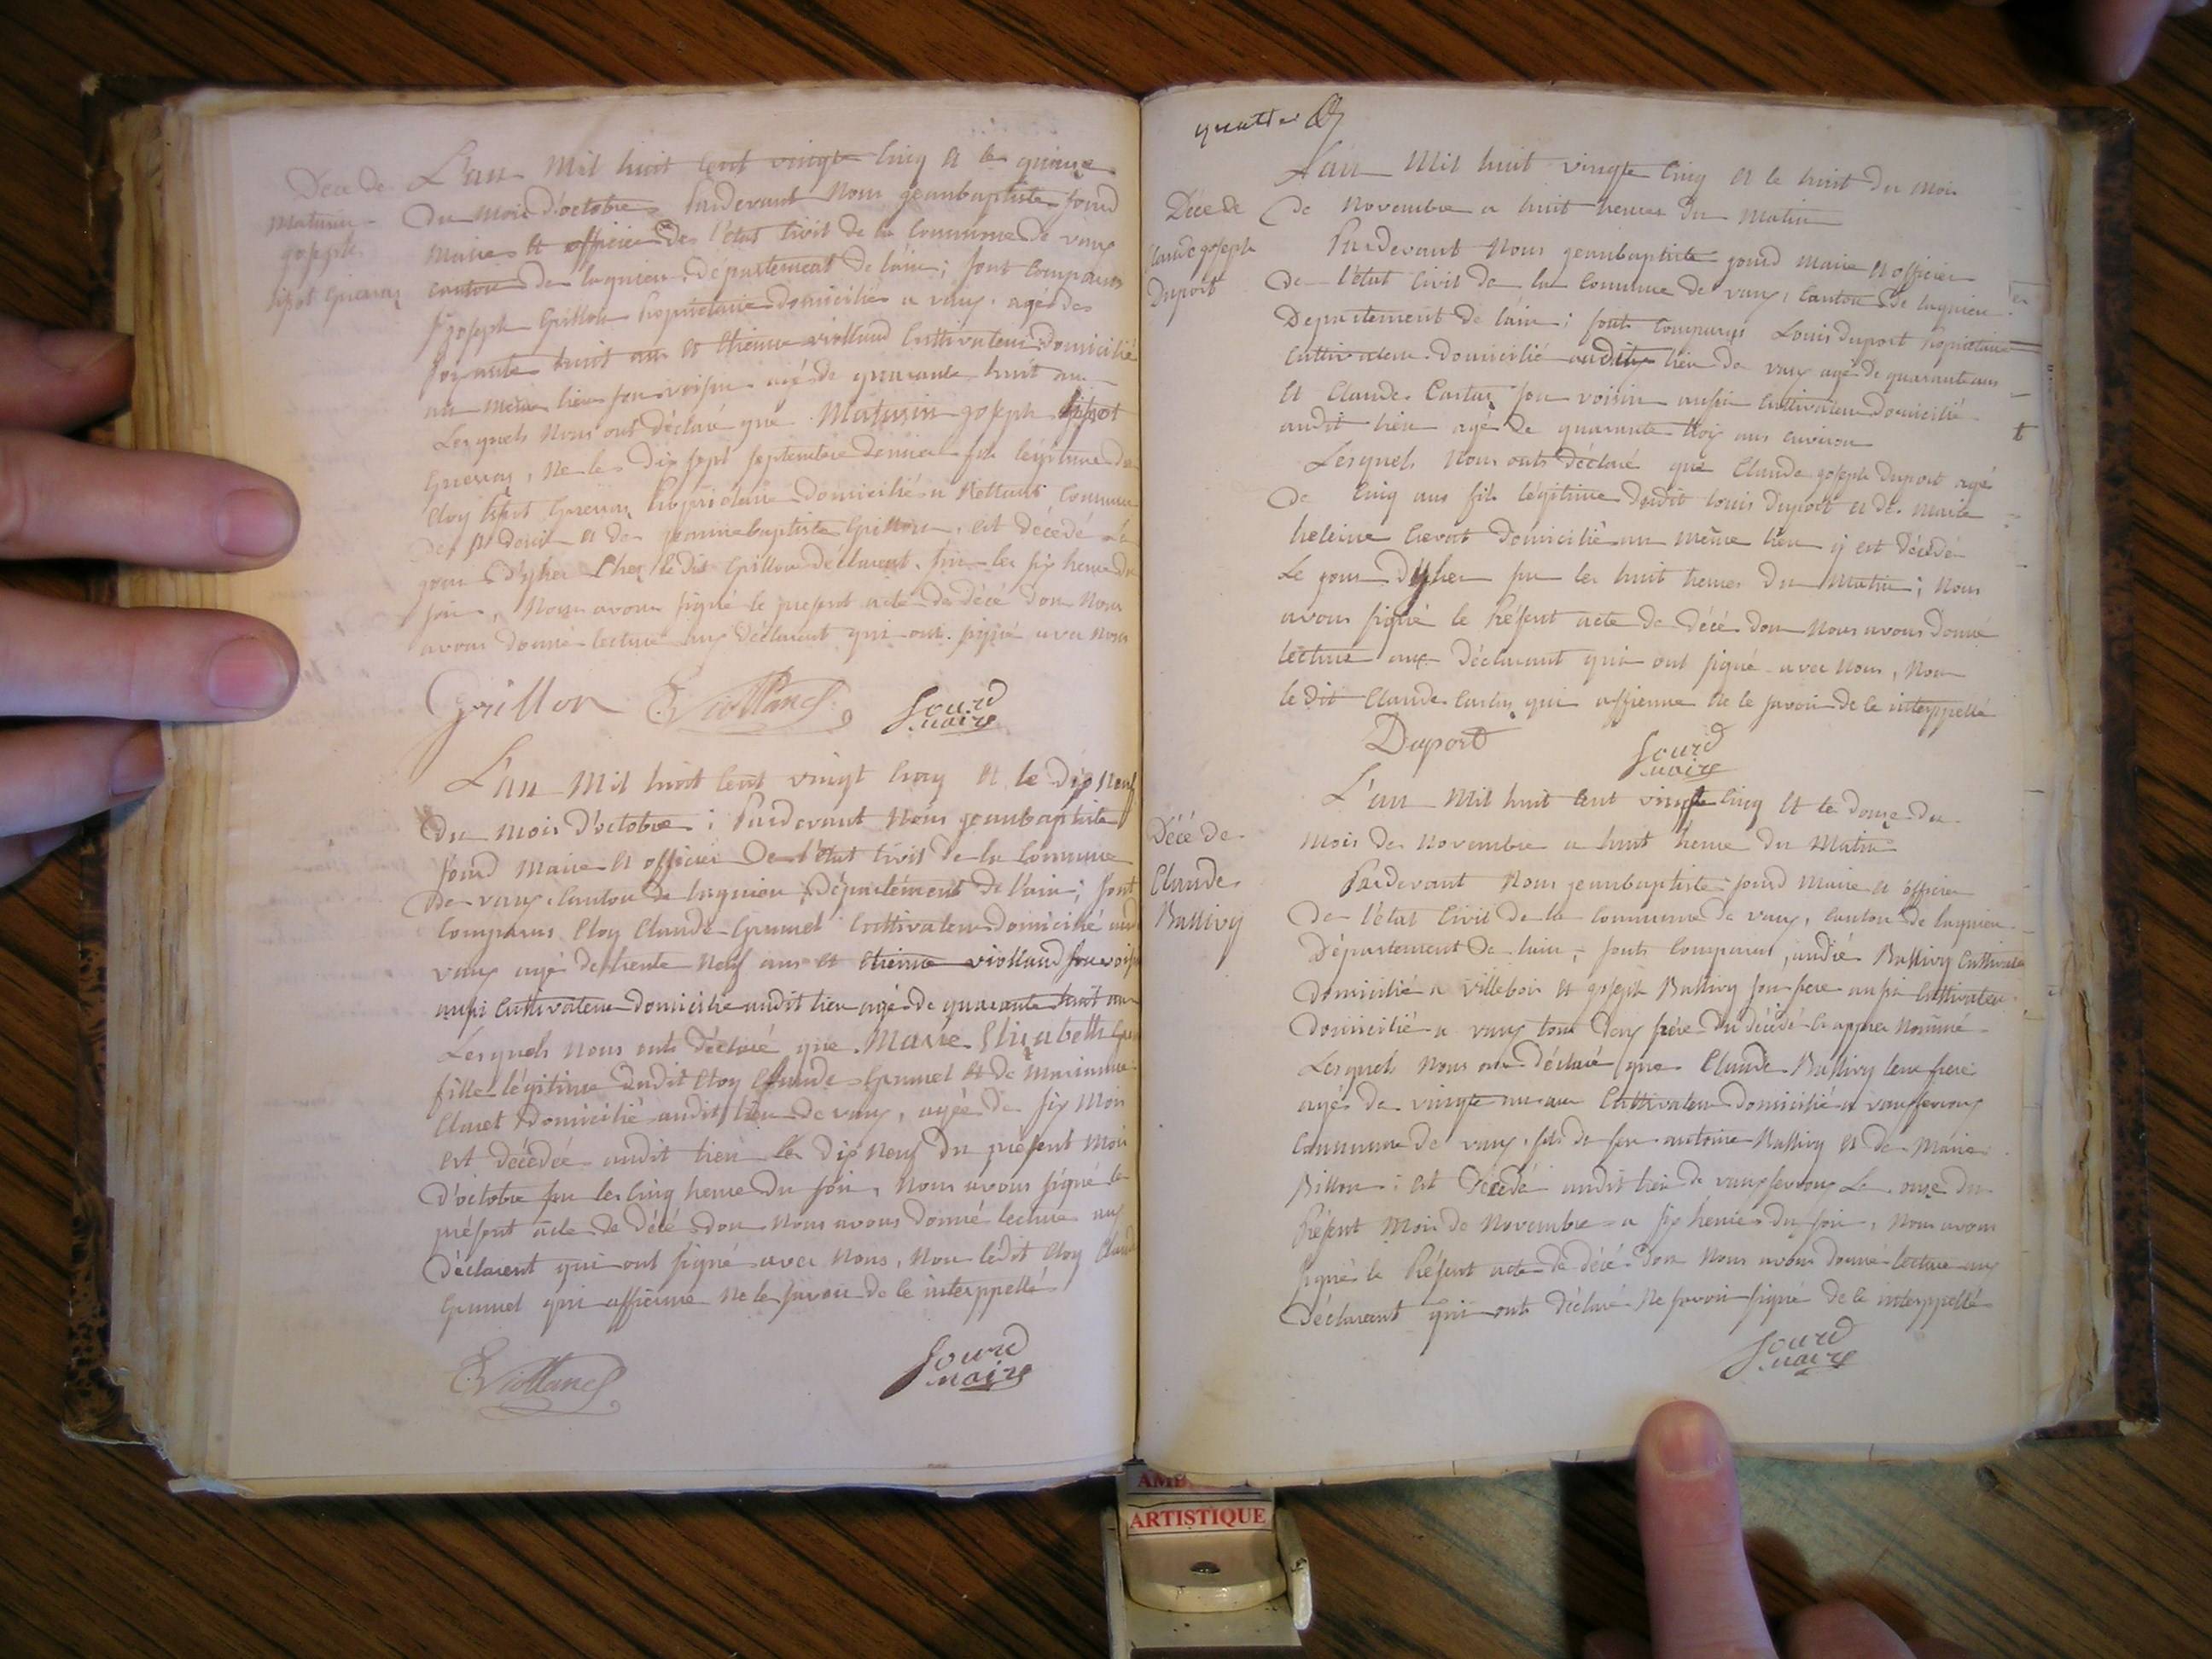 Décé de
Maturin
joseph
L'an Mil huit Cent vingte Cinq et le quinze
du Mois d'octobre Pardevant Nous jeanbaptiste Sourd
Maire et officier de l'état Civil de la Commune de vaux
canton de lagnieu département de l'ain ; sont Comparus
joseph Grillon Propriétaire domicilié a vaux agé de
soixante huit ans et Etienne violland Cultivateur domicilié
au même lieu son voisin agé de quarante huit ans
Lesquels Nous ont déclaré que Maturin joseph
né le dix sept septembre dernier fils légitime de
Eloy Propriétaire domicilié a Commune
de et de jeannebaptiste Grillon, est décédé le
jour d'yher Chez le dit Grillon déclarent, sur les six heures du
soir, Nous avons signé le present acte de décé don Nous
avons donné lecture aux déclarent qui ont signé avec Nous
Grillon EViolland Sourd
maire
L'an Mil huit Cent vingt Cinq et le dix Neuf
du Mois d'octobre ; Pardevant Nous jeanbaptiste
Sourd Maire et officier De l'état Civil de la Commune
de vaux, Canton de lagnieu Département de l'ain ; sont
Comparus Eloy Claude Grumel Cultivateur domicilié
vaux agé de trente Neuf ans et Etienne violland son voisin
aussi Cultivateur domicilié audit lieu agé de quarante huit ans
Lesquels Nous onts déclaré que Marie Elizabeth
fille légitime dudit Eloy Claude Grumel et de Marianne
Claret domicilié audit lieu de vaux, agée de six Mois
est décédée audit lieu le dix Neuf du présent Mois
d'octobre sur les Cinq heure du soir, Nous avons signé le
présent acte de décé don Nous avons donné lecture aux
déclarent qui ont signé avec Nous, Non ledit Eloy Claude
Grumel qui affirme Ne le savoir de ce interppellé
EViolland Sourd
maire
quatre
Décé de
Claude joseph
Duport
L'an Mil huit vingte Cinq et le huit du Mois
de Novembre a huit heures du Matin
Pardevant Nous jeanbaptiste Sourd Maire et officier
de l'état Civil de la Commune de vaux, Canton de lagnieu
Département de l'ain ; sonts Comparus Louis Duport Propriétaire
Cultivateur domicilié audite lieu de vaux agé de quarante ans
et Claude son voisin aussi Cultivateur domicilié
audit lieu agé de quarante trois ans environ
Lesquels Nous onts déclaré que Claude joseph Duport agé
de Cinq ans fils légitime dudit Louis Duport et de Marie
heleine domicilié au même lieu y est décédé
Le jour d'yher sur les huit heures du Matin ; Nous
avons signé le Présent acte de décé don Nous avons donné
lecture aux Déclarant qui ont signé avec Nous, Non
le dit Claude qui affirme Ne le savoir de ce interppellé
Duport Sourd
maire
Décé de
Claude
Ballivy
L'an Mil huit Cent vingte Cinq et le douze du
Mois de Novembre a huit heure du Matin
Pardevant Nous jeanbaptiste Sourd Maire et officier
De l'état Civil de la Commune de vaux, Canton de lagnieu
Département de l'ain ; sonts Comparus, andré Ballivy Cultivateur
domicilié a villebois et joseph Ballivy son frere aussi Cultivateur
domicilié a vaux tous deux frére du décédé Ci apprès Nommé
Lesquels Nous ons déclaré que Claude Ballivy leur frere
agés de vingte un ans Cultivateur domicilié a vauxfevroux
Commune de vaux, fils de feu antoine Ballivy et de Marie
Billon ; est Décédé audit lieu de vauxfevroux Le onze du
Présent Mois de Novembre a six heures du soir, Nous avons
signés le Présent acte de décé don Nous avons donné lecture aux
déclarent qui onts déclaré Ne savoir signé de ce interppellé
Sourd
maire
ARTISTIQUE